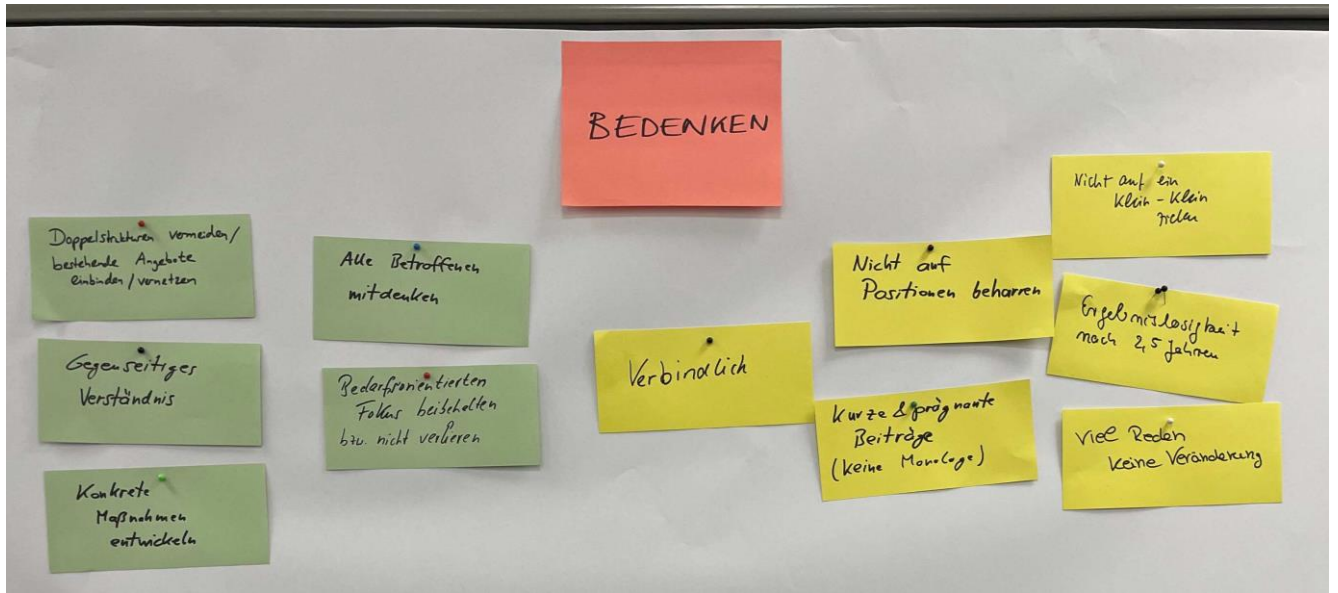 BEDENKEN
Doppelstrukturen vermeiden/
bestehende Angebote
einbinden/vernetzen
Gegenseitiges
Verständnis
Konkrete
Maßnahmen
entwickeln
Alle Betroffenen
mitdenken
Bedarfsorientierten
Fokus beibehalten
bzw. nicht verlieren
Verbindlich
Nicht auf
Positionen beharren
Kurze & prägnante
Beiträge
(keine Monologe)
Nicht auf ein
Klein-Klein
zielen
Ergebnislosigkeit
nach 2,5 Jahren
Viel Reden
keine Veränderung